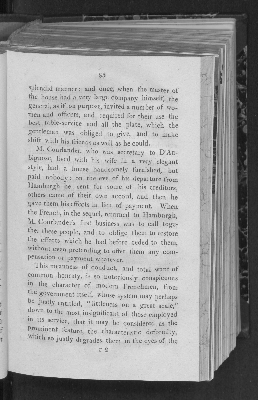 splendid manner: and once, when the master of
the house had a very large company himself, the
general, as if on purpose, invited a number of wo-
men and officers, and required for their use the
best table-service and all the plate, which the
gentleman was obliged to give, and to make
shift with his friends as well as he could.
M. Courlander, who was secretary to D'Au-
lived with his wife in a very elegant
style, had a house handsomely furnished, but
paid nobody: on the eve of his departure from
Hamburgh he sent for some of his creditors,
others came of their own accord, and then he
gave them his effects in lieu of payment. When
the French, in the sequel, returned to Hamburgh,
M. Courlander's first business was to call toge-
ther these people, and to oblige them to restore
the effects which he had before ceded to them,
without even pretending to offer them any com-
pensation or payment whatever.
This meanness of conduct, and total want of
common honesty, is so notoriously conspicuous
in the character of modern Frenchmen, from
the government itself, whose system may perhaps
be justly entitled, "littleness on a great scale,"
down to the most insignificant of those employed
in its service, that it may be considered as the
prominent feature, the characteristic deformity,
which so justly degrades them in the eyes of the